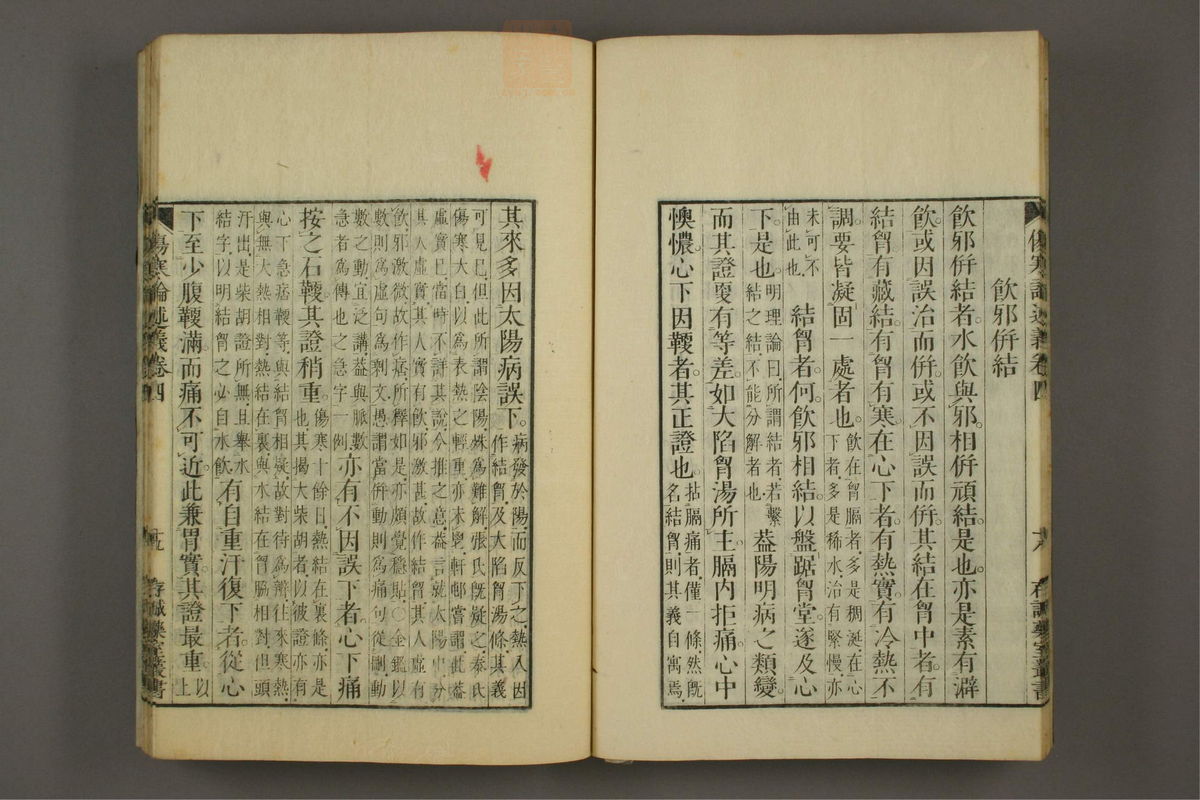 傷寒論述義卷四 十八 存誠藥室叢書
飲邪併結
飲邪併結者。水飲與邪相併頑結是也。亦是素有澼
飲。或因誤治而併。或不因誤而併。其結在胷中者。有
結胷有藏結有胷有寒。在心下者。有熱實。有冷熱不
調。要皆凝固一處者也。飲在胷膈者。多是稠涎。在心下者。多是稀水。治有緊慢。亦
未可不由此也 結胷者何。飲邪相結。以盤踞胷堂。遂及心
下。是也。明理論曰。所謂結者。若繫結之結。不能分解者也 葢陽明病之類變
而其證有等差。如大陷胷湯所主。膈內拒痛。心中
懊憹。心下因鞕者。其正證也。拈膈痛者。僅一條。然旣名結胷。則其義自寓焉。
其來多因太陽病誤下。病發於陽。而反下之。熱入因作結胷。及大陷胷湯條。其義
可見已。但此所謂陰陽。殊爲難解。張氏旣疑之。秦氏
傷寒大白。以爲表熱之輕重。亦未㒵。軒邨嘗謂此葢
虛實已。當時不詳其說。今推之意。葢言就太陽中。分
其人虛實。其人實有飲。邪激甚。故作結胷。其人虛有
飲。邪激微。故作痞。所釋如是。亦頗覺穩貼。○金鑑以
數則爲虛句。爲剩文。愚謂當併動則爲痛句從刪。動
數之動。宜泛講。葢與脈數
急者爲傳也之急字一例 亦有不因誤下者。心下痛
按之石鞕。其證稍重。傷寒十餘日。熱結在裏條。亦是也。其揭大柴胡者。以彼證亦有
心下急。痞鞕等。與結胷相疑。故對待爲辨。往來寒熱
與無大熱相對。熱結在裏。與水結在胷脇相對。但頭
汗出。是柴胡證所無。且舉水
結字。以明結胷之必自水飲 有自重汗復下者。從心
下至少腹鞕滿。而痛不可近。此兼胃實。其證最重。以上
傷寒論述義卷四 十九 存誠藥室叢書